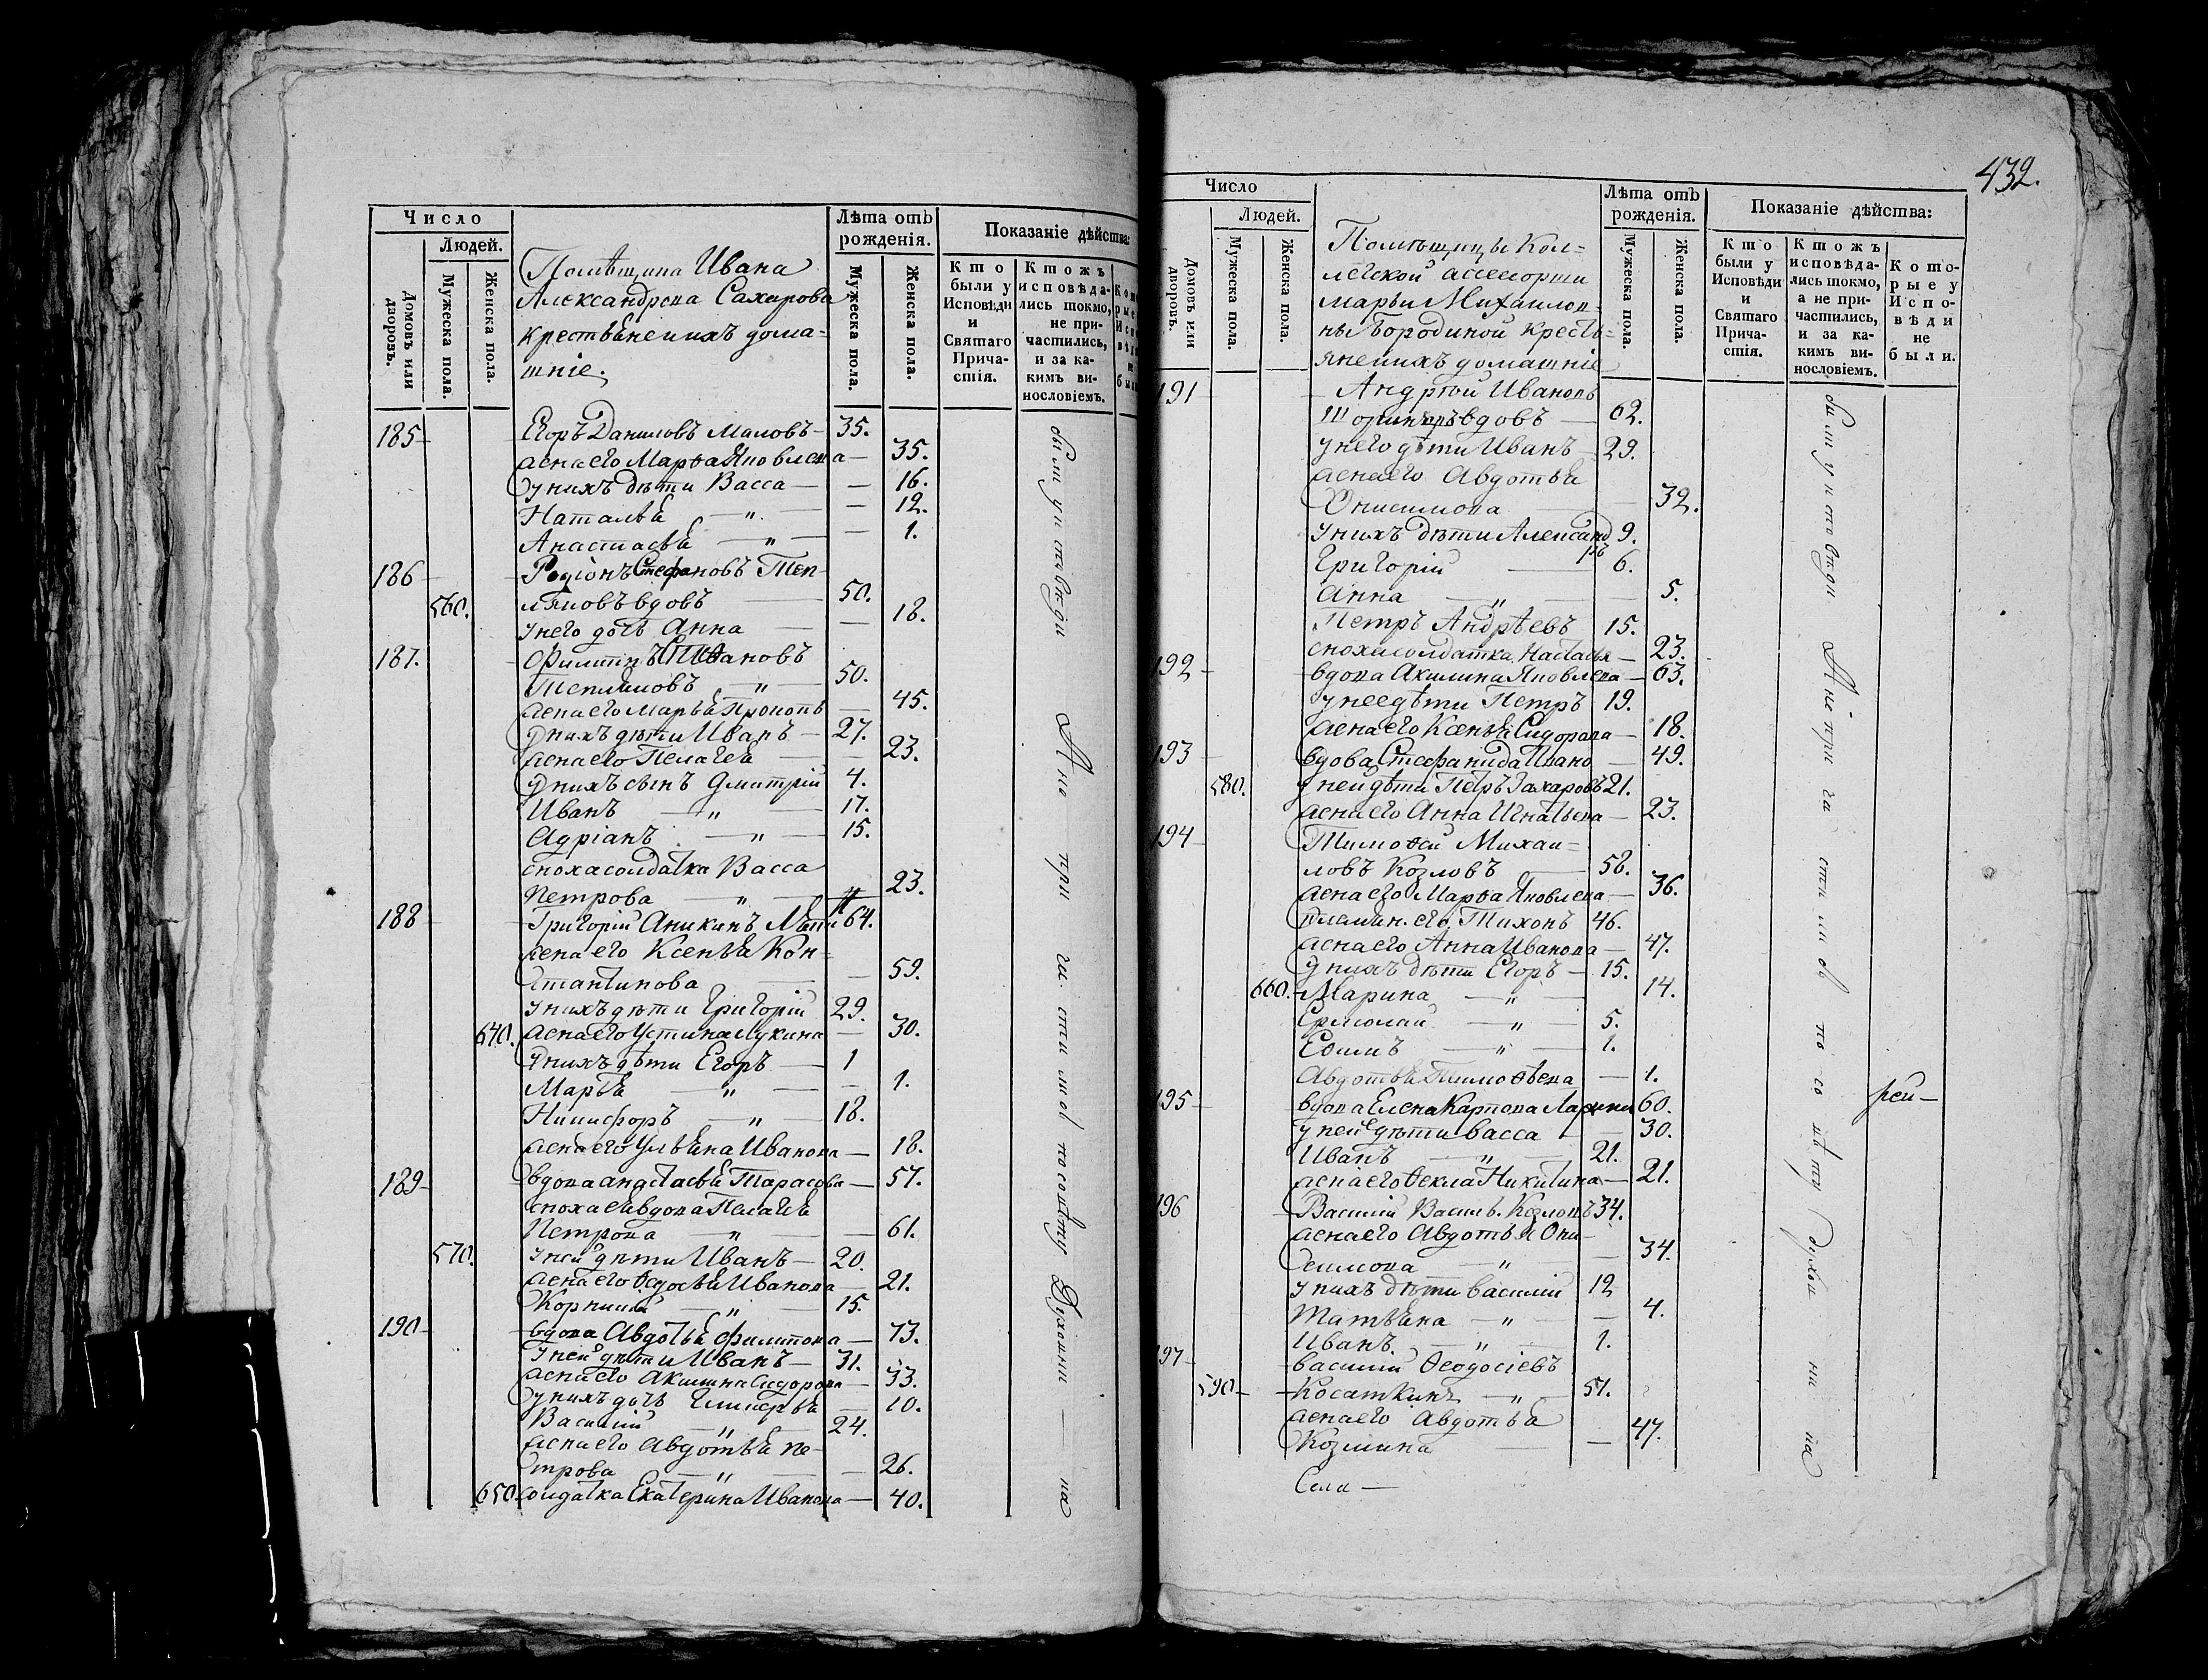 Число
Людей.
Домовъ или дворовъ.
Мужеска пола.
Женска пола.
Лѣта отъ рожденія.
Мужеска пола.
Женска пола.
Показаніе дѣйства:
Кто были у Исповѣди и Святаго Причастія.
Ктожъ исповѣдались токмо, не причастились, и за какимъ винословіемъ.
Помѣщика Ивана
Александрова Сахарова
крестьяне и ихъ дома=
шніе.
185 Егоръ Даниловъ Маловъ 35.
жена его Марѳа Яковлева 35.
у нихъ дѣти Васса 16.
Наталья 12.
Анастасья 1.
186 Родіонъ Стефановъ Теп-
560. ляковъ вдовъ 50.
у него дочь Анна 18.
187. Филиппъ Ивановъ
50.
жена его Марья Прокопь 45.
у нихъ дѣти Иванъ 27.
жена его Пелагея 23.
у нихъ сынъ Дмитрій 4.
Иванъ 17.
Адріанъ 15.
сноха солдатка Васса
Петрова 23.
188 Григорій Аникинъ 64.
жена его Ксенья Кон=
стантинова 59.
у нихъ дѣти Григорій 29.
640. жена его Устина Лукина 30.
у нихъ дѣти Егоръ 1
Марья 1.
Никифоръ 18.
жена его Ульяна Иванова 18.
189 вдова Анастасья Тарасова 57.
сноха ея вдова Пелагея
Петрова 61.
570. у ней дѣти Иванъ 20.
жена его Ѳедосья Иванова 21.
Корнилій 15.
190 вдова Авдотья Филиппова 73.
у ней дѣти Иванъ 31.
жена его Акилина Сидорова 33.
у нихъ дочь Гликерья 10.
Василій 24.
жена его Авдотья Пе-
трова 26.
650. солдатка Екатерина Иванова 40.
были у исповѣди А не причастились по совѣту Духовни на
432.
Число
Людей.
Домовъ или дворовъ.
Мужеска пола.
Женска пола.
Лѣта отъ рожденія.
Мужеска пола.
Женска пола.
Показаніе дѣйства:
Кто были у Исповѣди и Святаго Причастія.
Ктожъ исповѣдались токмо, а не причастились, и за какимъ винословіемъ.
Которые у Исповѣди не были.
Помѣщицы Кол=
лежской ассесорши
Марьи Михаилов=
ны Бородиной кресть=
яне и ихъ домашніе
191 Андрей Ивановъ
вдовъ 62.
у него дѣти Иванъ 29.
жена его Авдотья
Онисимова 32.
у нихъ дѣти Александ 9.
ръ
Григорій 6.
Анна 5.
Петръ Андрѣевъ 15.
сноха солдатка Настасья 23.
192 вдова Акилина Яковлева 63.
у нее дѣти Петръ 19.
жена его Ксенья Сидорова 18.
193 вдова Стефанида Ивано 49.
580. у ней дѣти Петръ Захаровъ 21.
жена его Анна Игнатьева 23.
194 Тимоѳей Михаи=
ловъ Козловъ 58.
жена его Марѳа Яковлева 36.
племян. его Тихонъ 46.
жена его Анна Иванова 47.
у нихъ дѣти Егоръ 15.
660. Марина 14.
Ермолай 5.
Еѳимъ 1.
Авдотья Тимоѳеева 1.
195 вдова Елена Карпова 60.
у ней дѣти Васса 30.
Иванъ 21.
жена его Ѳекла Никитина 21.
196 Василій Васил. Козловъ 34.
жена его Авдотья Они-
симова 34.
у нихъ дѣти Василій 12
Татьяна 4.
Иванъ 1.
197 Василій Ѳеодосіевъ
590 Косаткинъ 57.
жена его Авдотья
Козмина 47.
Села
были у исповѣди А не причастились по совѣту Духовни на